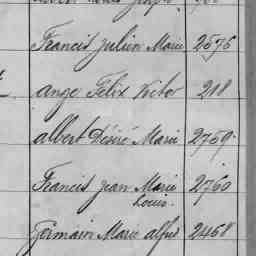 Francis Julien Marie 2576
ange Félix Victor 218
albert Désiré Marie 2759
Francis jean Marie 2760
Louis.
Germain Marie alfred 2468